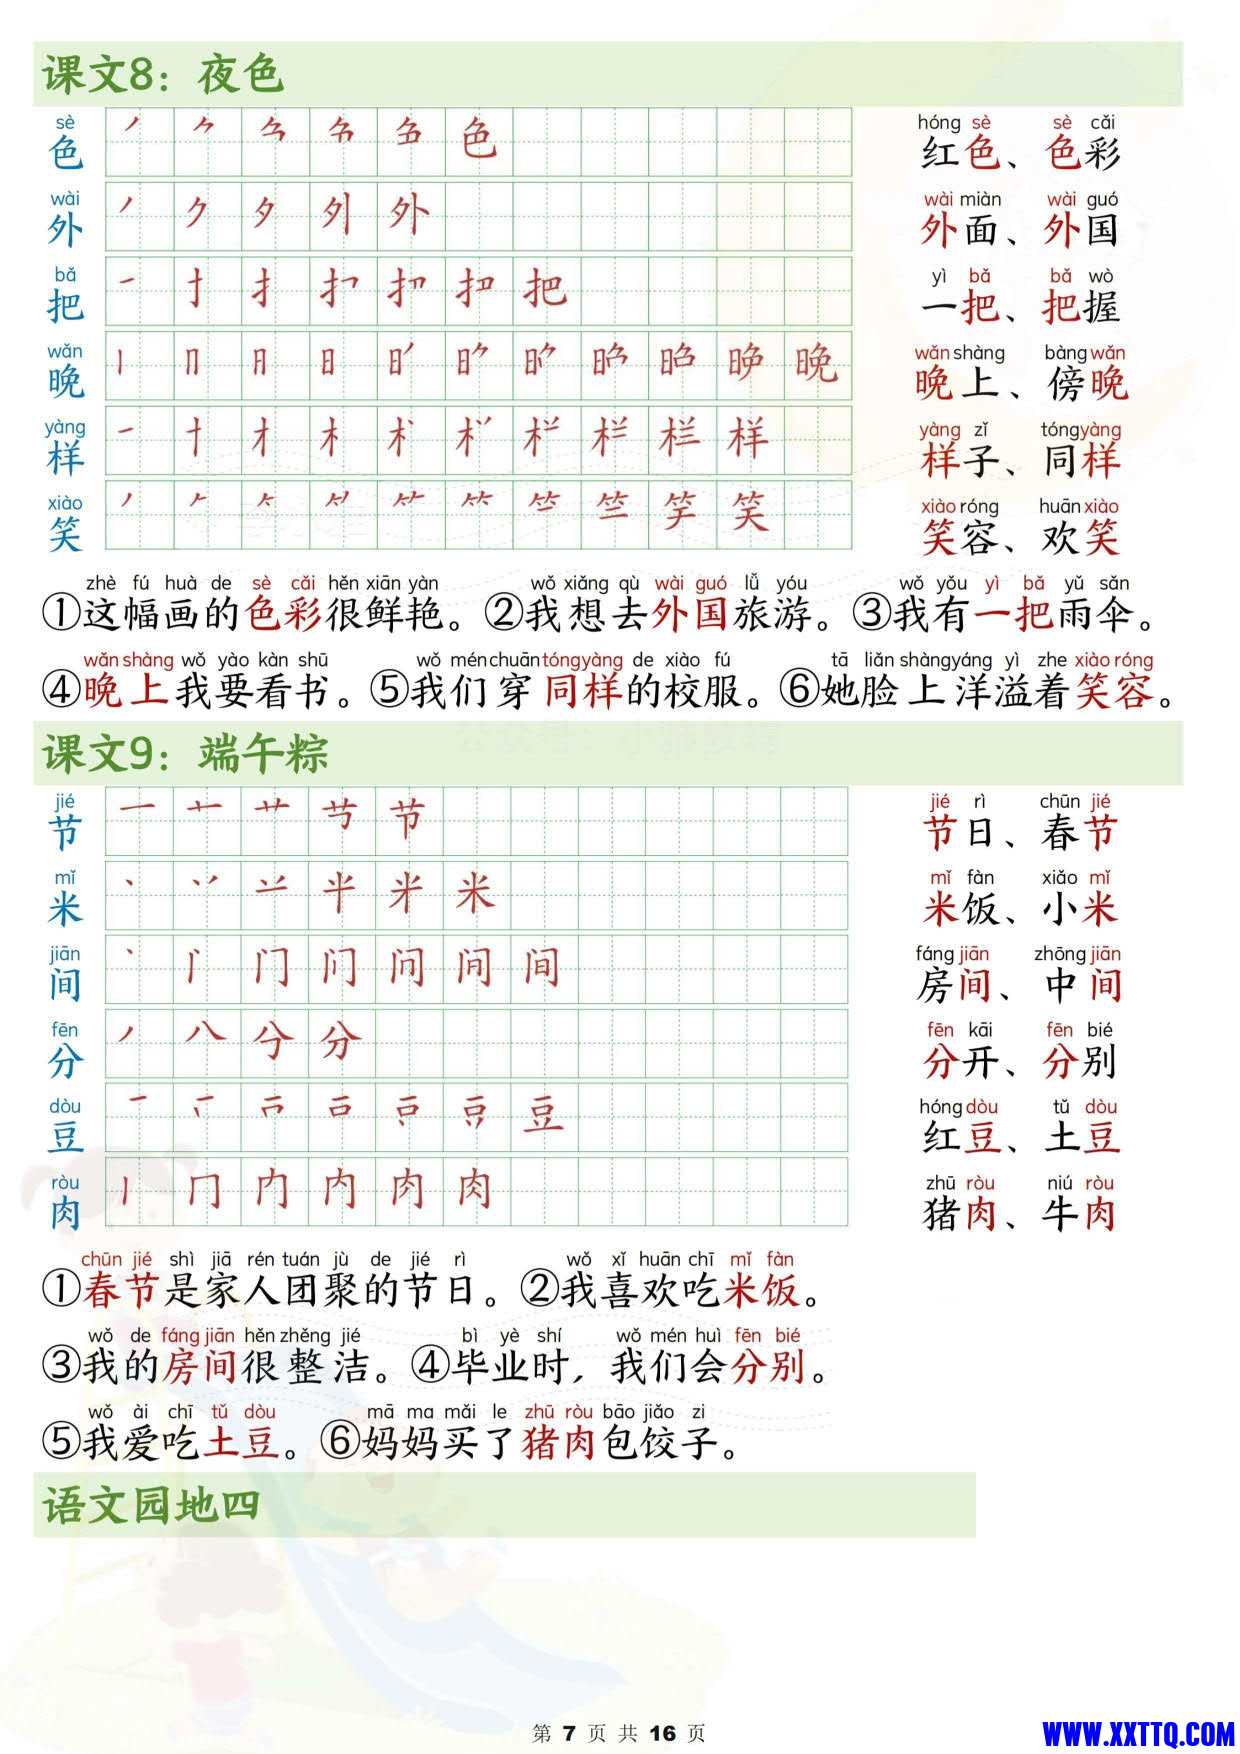 课文8：夜色
sè hóng sè sè cǎi
色 红色、色彩
wài wài miàn wài guó
外 外面、外国
bǎ yì bǎ bǎ wò
把 一把、把握
wǎn wǎn shàng bàng wǎn
晚 晚上、傍晚
yàng yàng zǐ tóng yàng
样 样子、同样
xiào xiào róng huān xiào
笑 笑容、欢笑
zhè fú huà de sè cǎi hěn xiān yàn wǒ xiǎng qù wài guó lǚ yóu wǒ yǒu yì bǎ yǔ sǎn
①这幅画的色彩很鲜艳。②我想去外国旅游。③我有一把雨伞。
wǎn shàng wǒ yào kàn shū wǒ mén chuān tóng yàng de xiào fú tā liǎn shàng yáng yì zhe xiào róng
④晚上我要看书。⑤我们穿同样的校服。⑥她脸上洋溢着笑容。
课文9：端午粽
jié jié rì chūn jié
节 节日、春节
mǐ mǐ fàn xiǎo mǐ
米 米饭、小米
jiān fáng jiān zhōng jiān
间 房间、中间
fēn fēn kāi fēn bié
分 分开、分别
dòu hóng dòu tǔ dòu
豆 红豆、土豆
ròu zhū ròu niú ròu
肉 猪肉、牛肉
chūn jié shì jiā rén tuán jù de jié rì wǒ xǐ huān chī mǐ fàn
①春节是家人团聚的节日。②我喜欢吃米饭。
wǒ de fáng jiān hěn zhěng jié bì yè shí wǒ mén huì fēn bié
③我的房间很整洁。④毕业时，我们会分别。
wǒ ài chī tǔ dòu mā ma mǎi le zhū ròu bāo jiǎo zi
⑤我爱吃土豆。⑥妈妈买了猪肉包饺子。
语文园地四
第 7 页 共 16 页
WWW.XXTTQ.COM